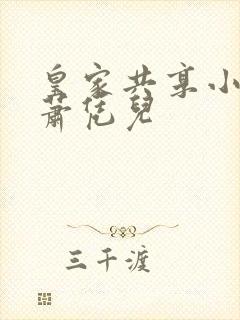 皇家共享小
蕭恁兒
三千渡